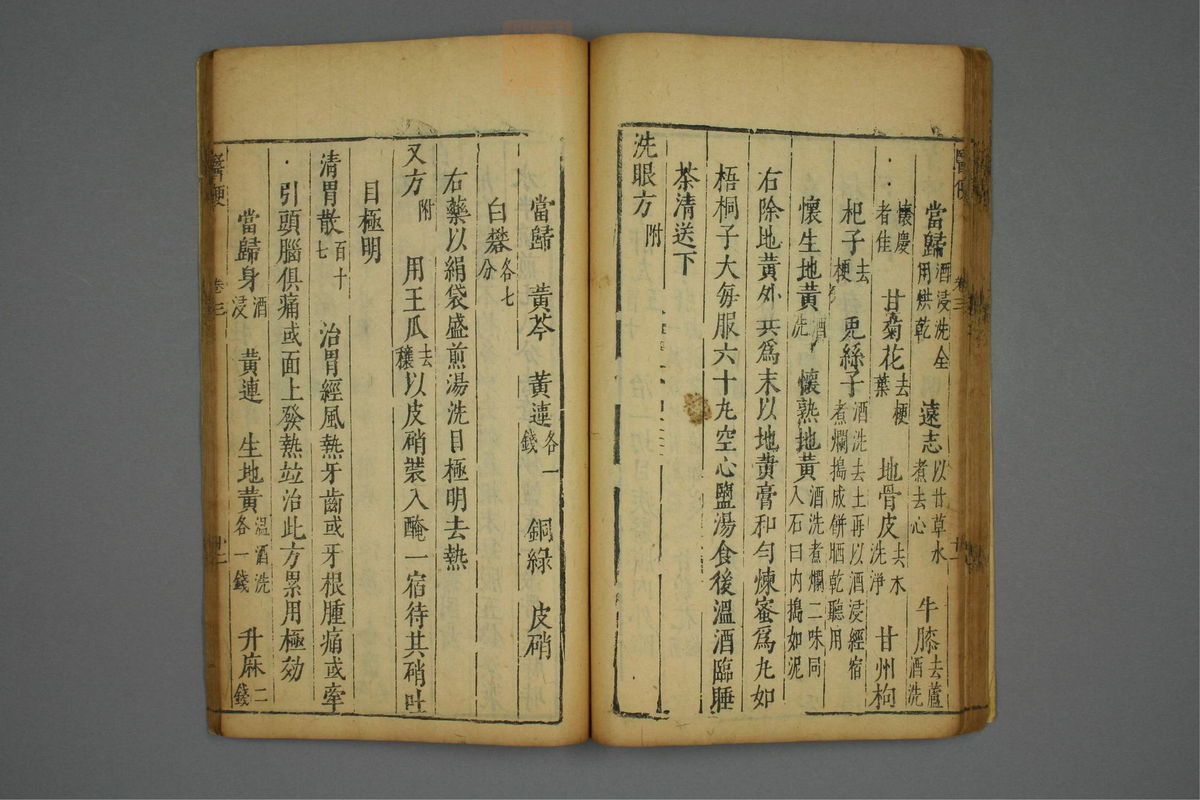 當歸酒浸洗全用烘乾 遠志以甘草水煮去心 牛膝去蘆酒洗
懷慶者佳 甘菊花去梗葉 地骨皮去木洗淨 甘州枸
杞子去梗 兎絲子酒洗去土再以酒浸經宿煮爛搗成餅晒乾聽用
懷生地黃酒洗 懷熟地黃酒洗煮爛二味同入石臼内搗如泥
右除地黃外共爲末以地黃膏和勻煉蜜爲丸如
梧桐子大每服六十丸空心鹽湯食後溫酒臨睡
茶清送下
洗眼方附
當歸 黃芩 黃連各一錢 銅綠 皮硝
白礬各七分
右藥以絹袋盛煎湯洗目極明去熱
又方附 用王瓜去穰以皮硝裝入醃一宿待其硝吐
目極明
清胃散百十七 治胃經風熱牙齒或牙根腫痛或牽
引頭腦俱痛或面上發熱竝治此方累用極効
當歸身酒浸 黃連 生地黃溫酒洗各一錢 升麻二錢
醫便 卷三
醫便 卷三